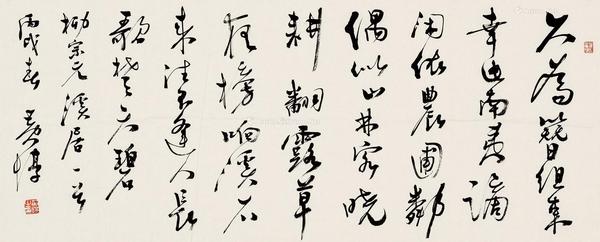 久為簪組束
幸此南夷謫
闲依農圃鄰
偶似山林客曉
耕翻露草
夜榜响溪石
来往不逢人長
歌楚天碧
柳宗元溪居一首
丙戌春 黄惇